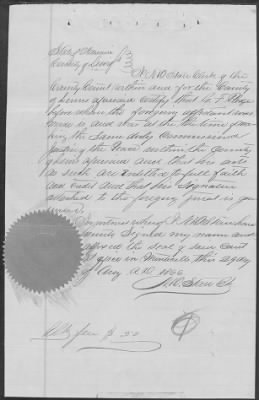 State of Missouri
County of Lewis
I, Clerk of the
County Court within and for the County
of Lewis aforesaid Certify that
before whom the foregoing affidavit was
made is, and was at the time of mak
ing the Same duly Commissioned
Justice of the Peace within the County
of Lewis aforesaid and that his acts
as Such are Entitled to full faith
and Credit and that his Signature
attached to the foregoing Jurat is gen
uine.
In witness whereof I
Signed my name and
affixed the Seal of Said Court
at office in Monticello this day
of Aug A.D. 1866
Clk
Clk fee $ .50